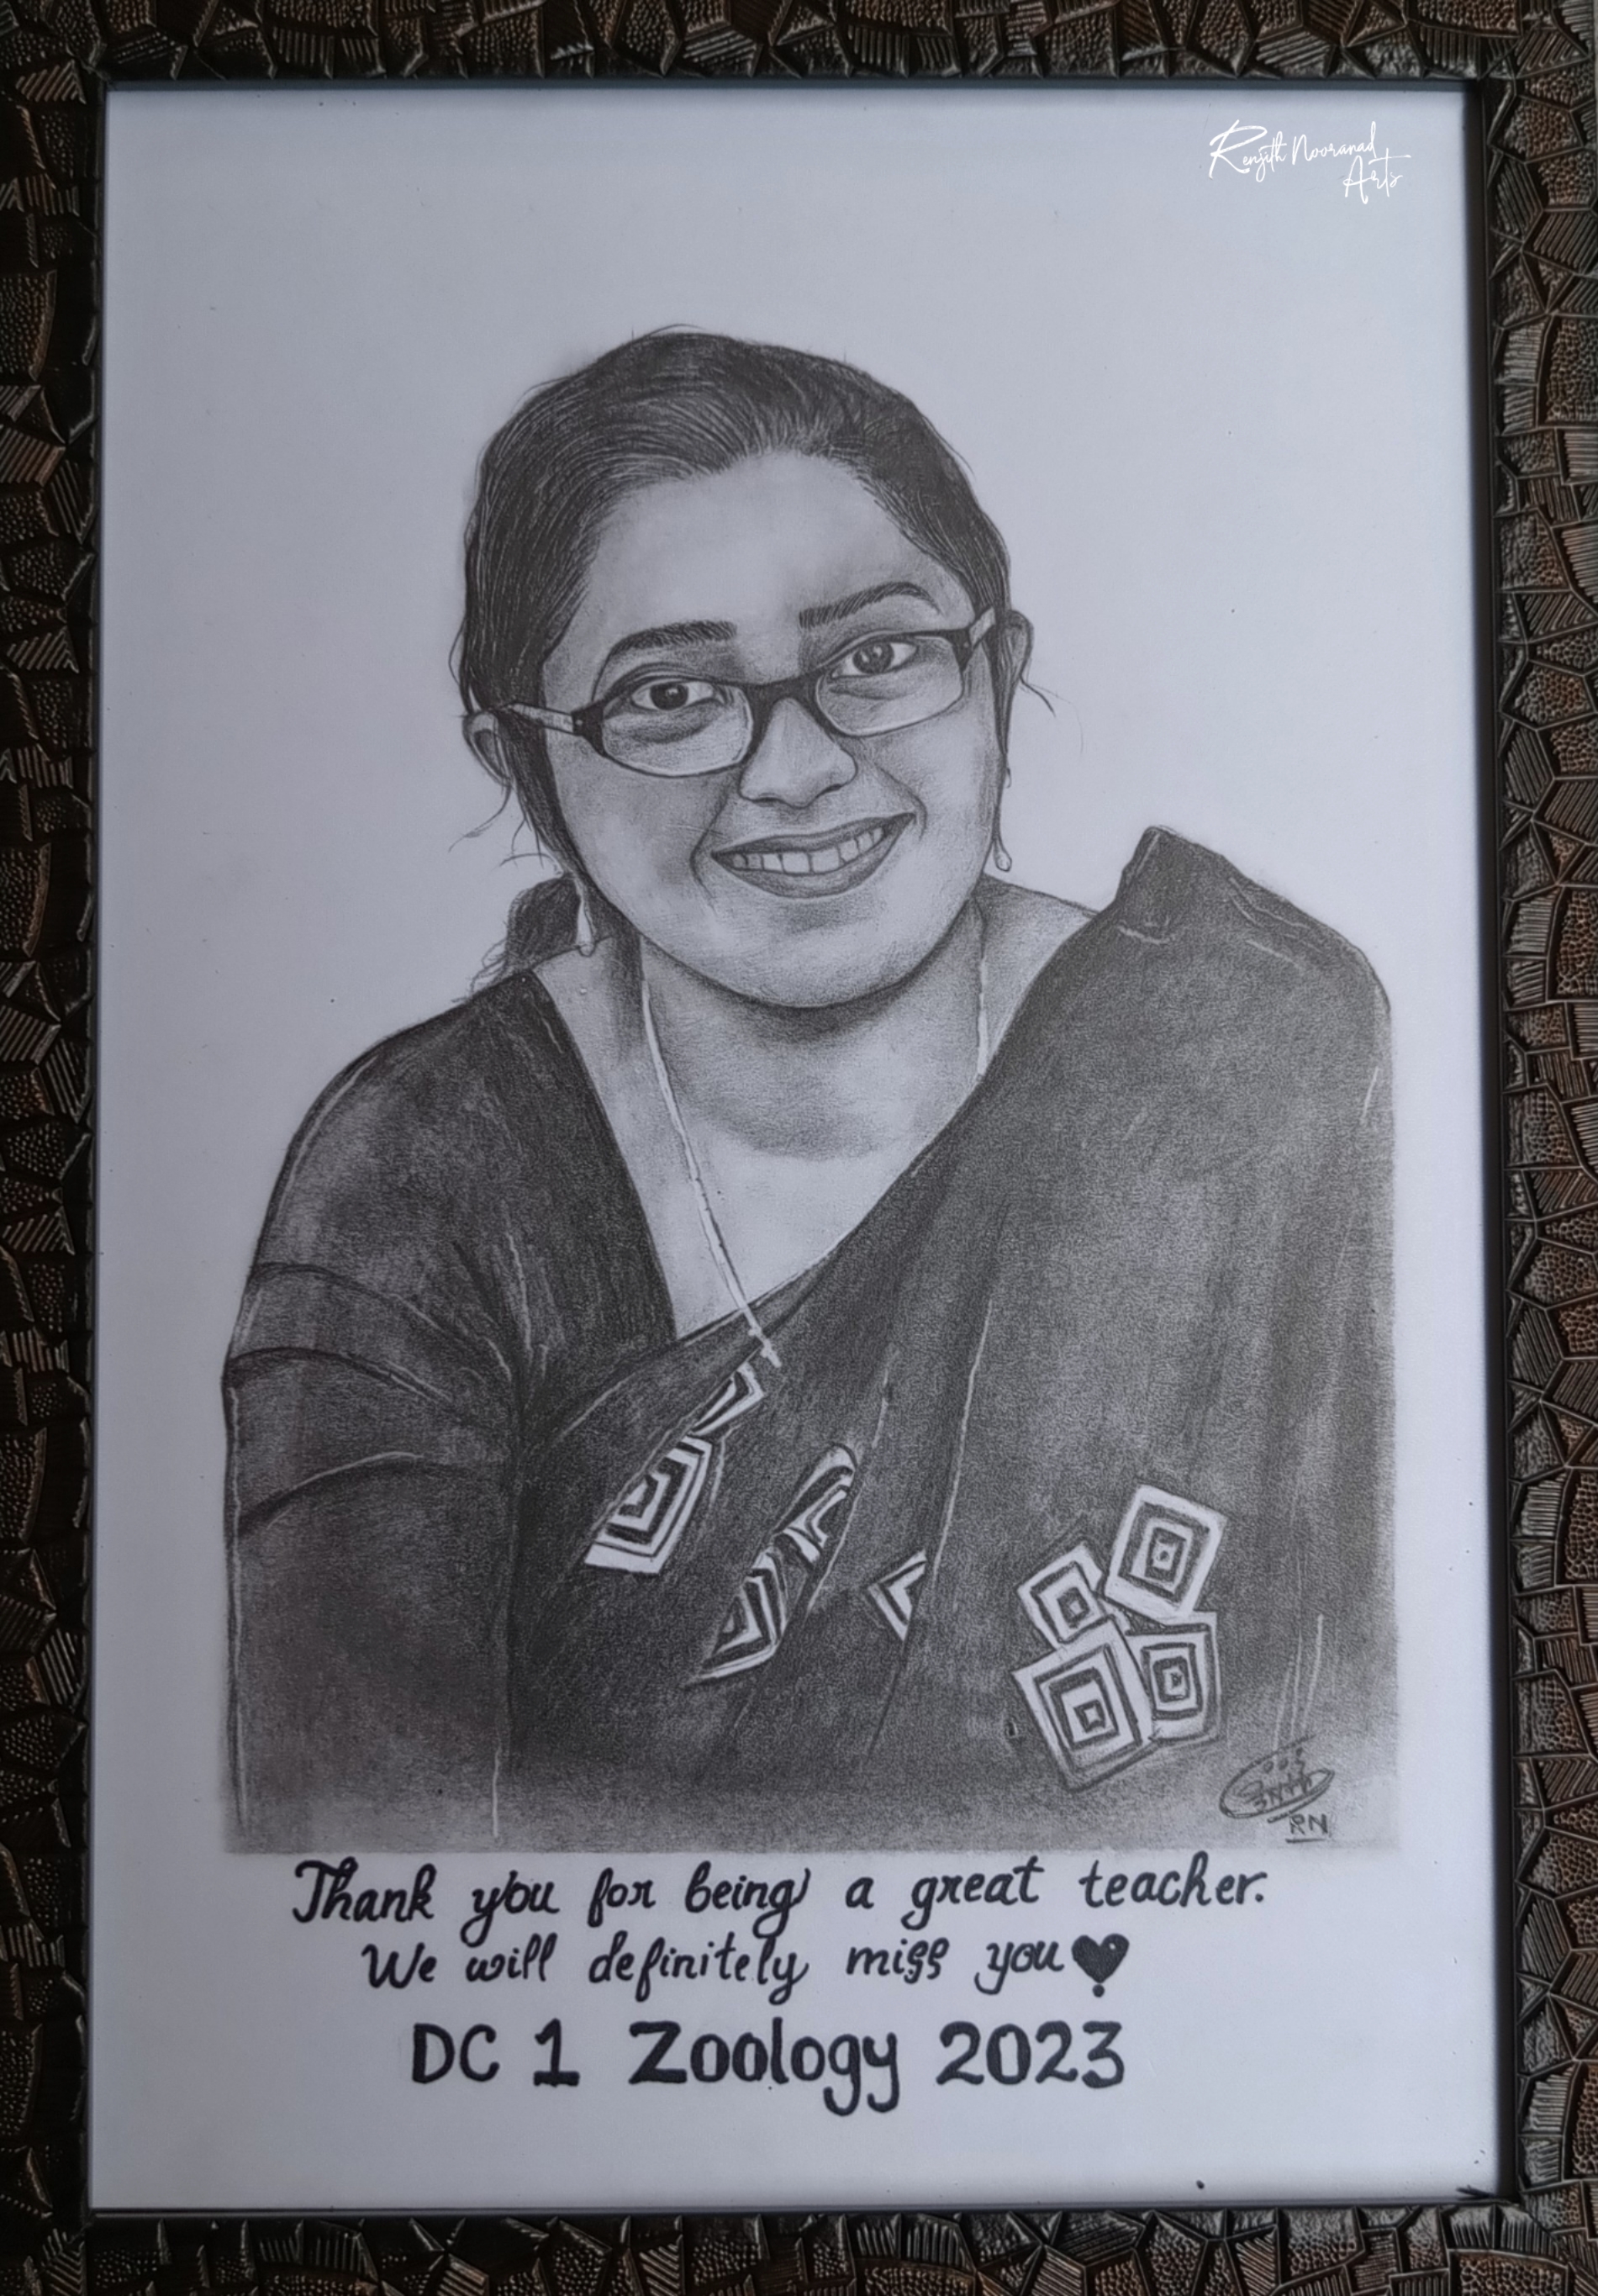 Renjith Nooranad
Arts
RN
Thank you for being a great teacher.
We will definitely miss you
DC 1 Zoology 2023